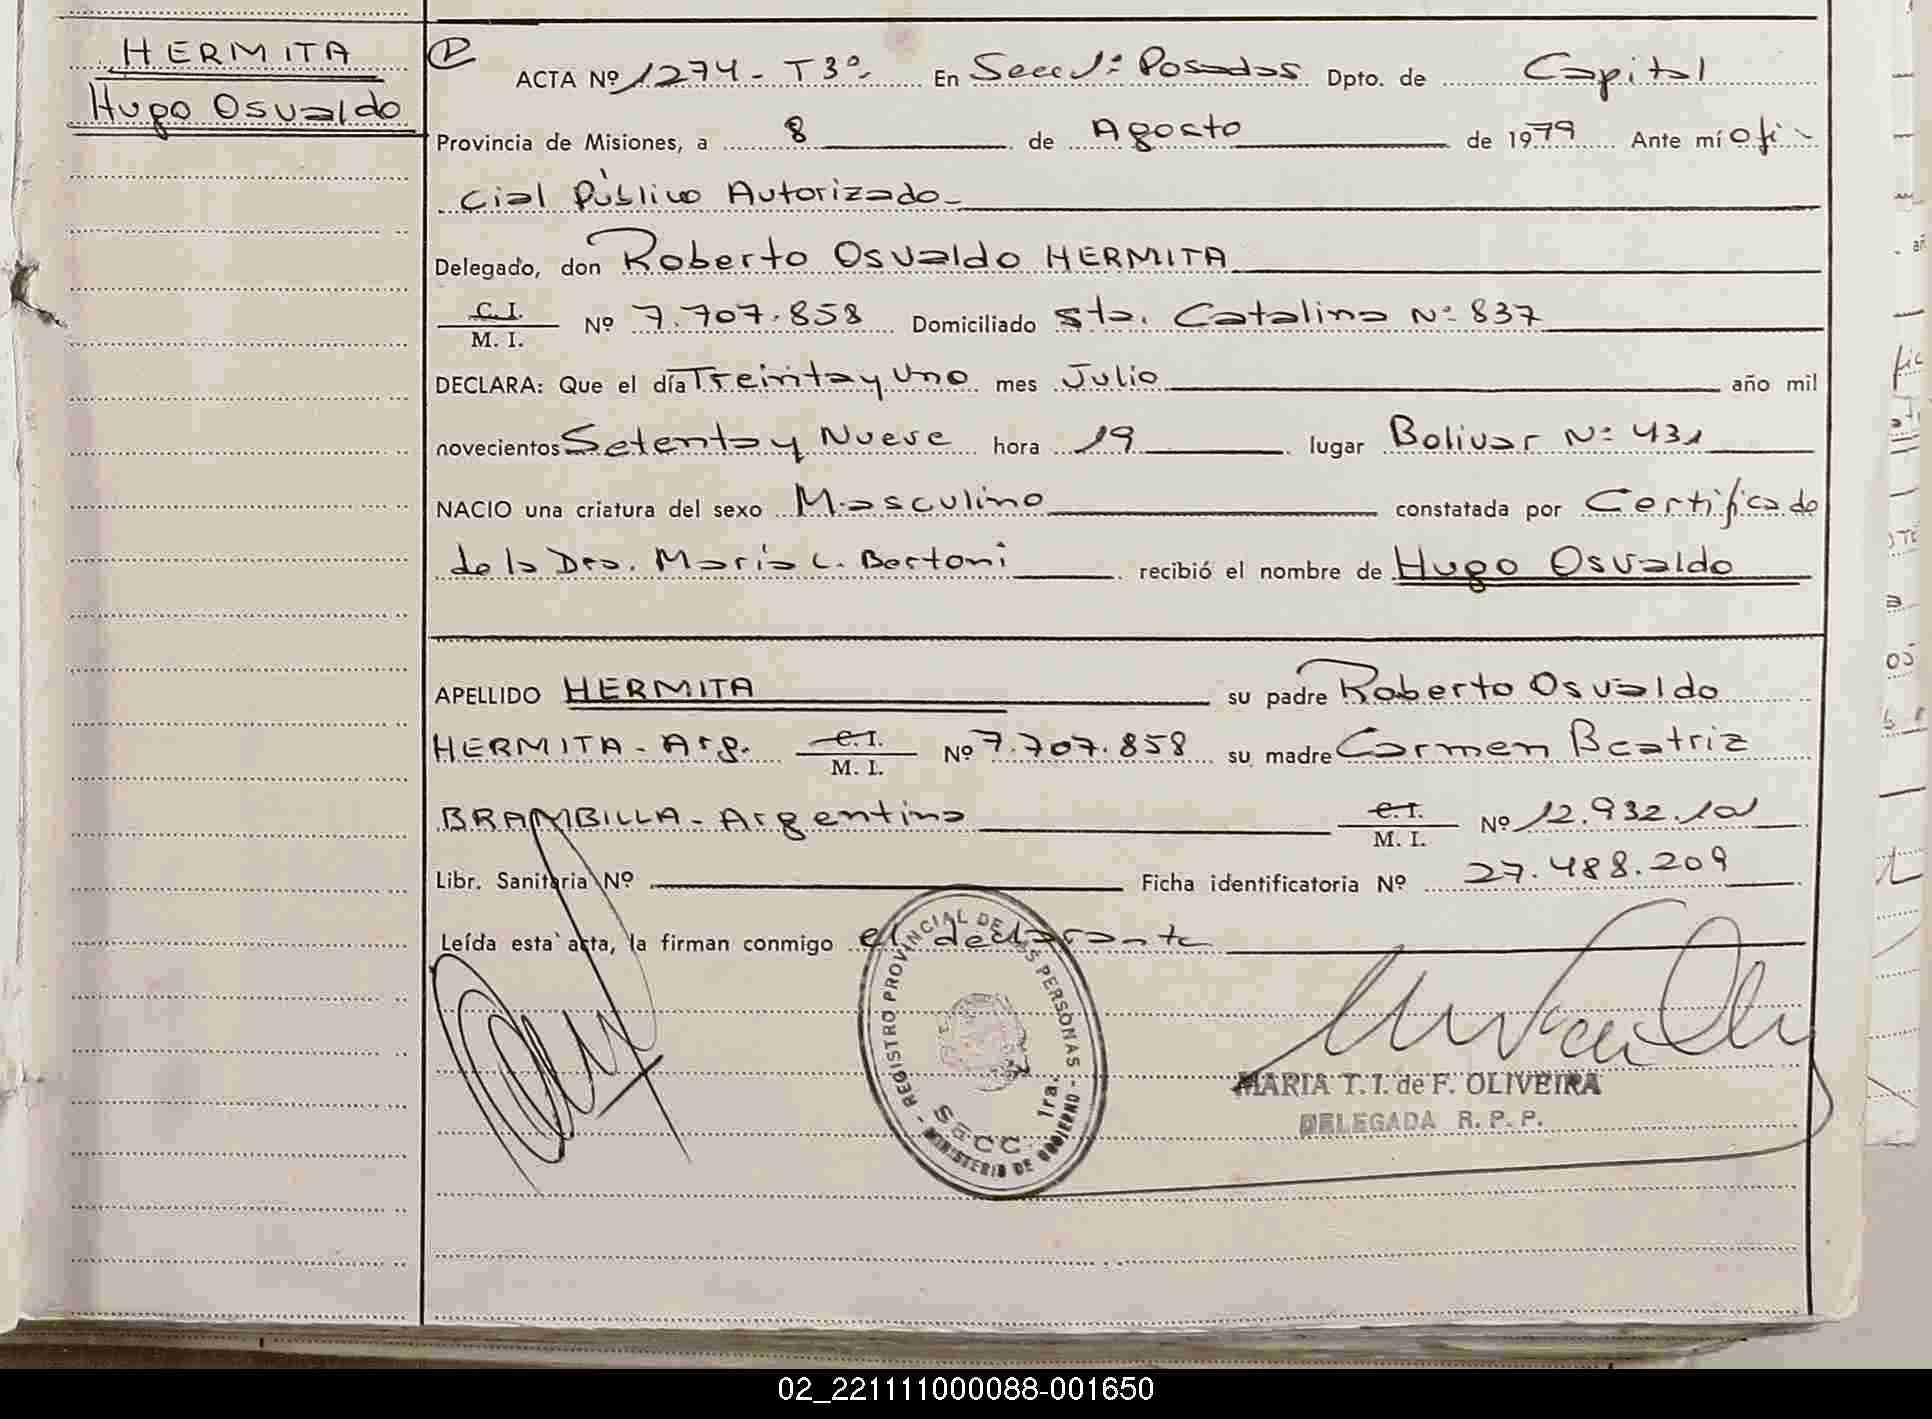 HERMITA
Hugo Osvaldo
ACTA Nº 1274 - T3º- En Secc 1ª Posadas Dpto. de Capital
Provincia de Misiones, a 8 de Agosto de 1979 Ante mí Ofi-
cial Público Autorizado-
Delegado, don Roberto Osvaldo HERMITA
C.I.
M. I. Nº 7.707.858 Domiciliado Sta. Catalina Nº 837
DECLARA: Que el día Treinta y Uno mes Julio año mil
novecientos Setenta y Nueve hora 19 lugar Bolivar Nº 431
NACIO una criatura del sexo Masculino constatada por Certificado
de la Dra. Maria L. Bertoni recibió el nombre de Hugo Osvaldo
APELLIDO HERMITA su padre Roberto Osvaldo
HERMITA - Arg. C.I.
M. I. Nº 7.707.858 su madre Carmen Beatriz
BRAMBILLA - Argentina C.I.
M. I. Nº 12.932.101
Libr. Sanitaria Nº Ficha identificatoria Nº 27.488.209
Leída esta acta, la firman conmigo el declarante
- REGISTRO PROVINCIAL DE LAS PERSONAS -
SECC. 1ra.
MINISTERIO DE GOBIERNO
MARIA T. I. de F. OLIVEIRA
DELEGADA R. P. P.
02_221111000088-001650